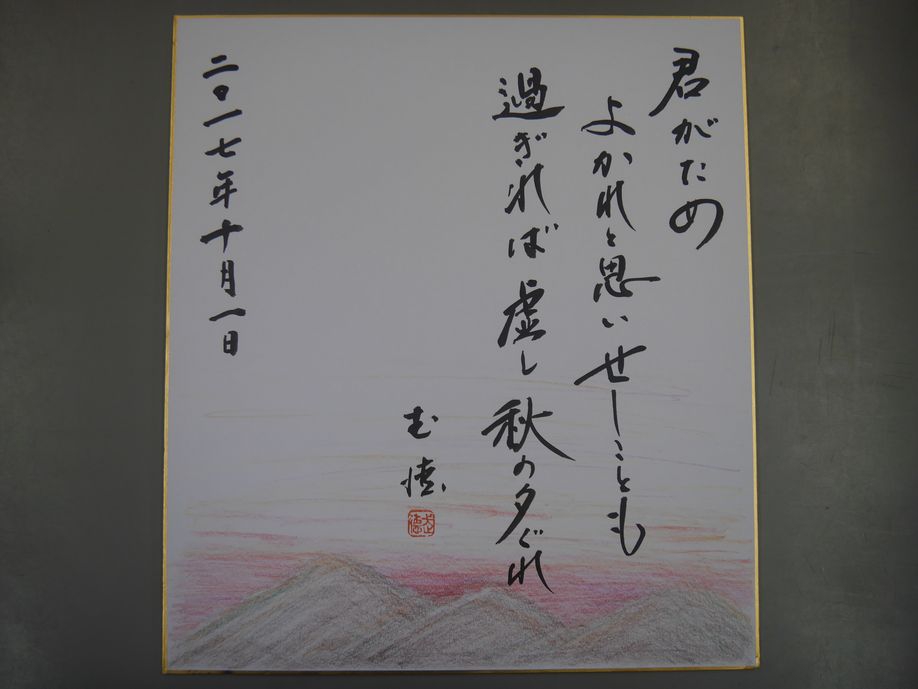 君がため
よかれと思いせしことも
過ぎれば虚し秋の夕ぐれ
二〇一七年十月一日